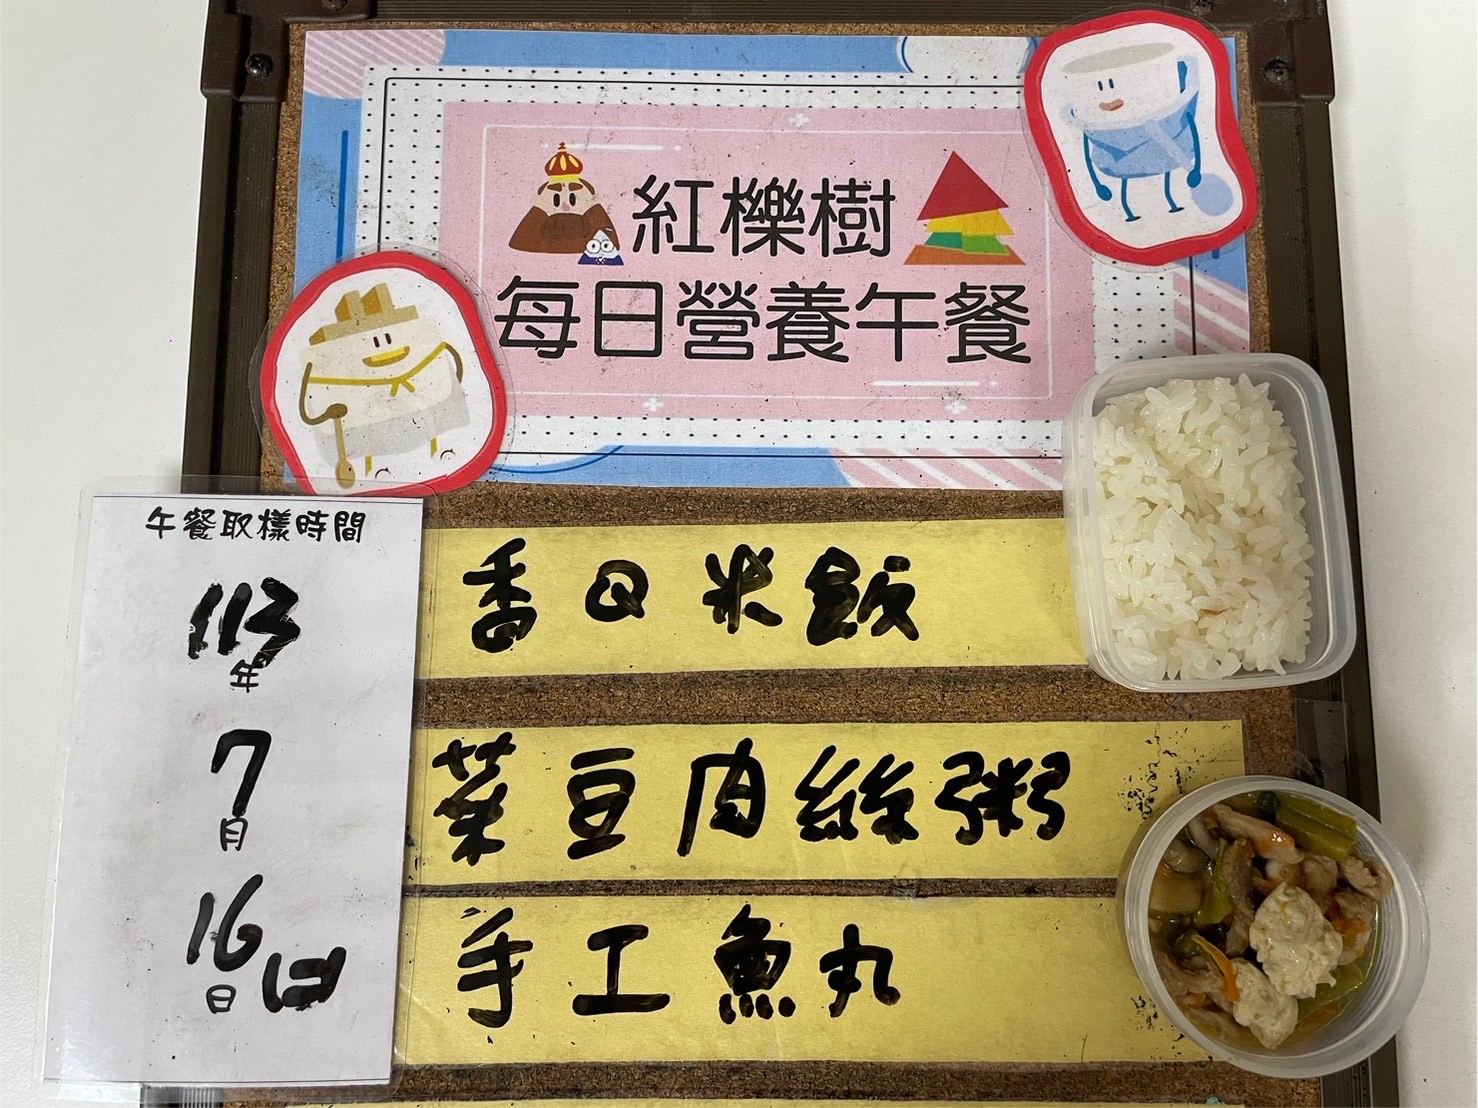 紅櫟樹
每日營養午餐
午餐取樣時間
113
年
7
月
16
日 (二)
香Q米飯
菜豆肉絲粥
手工魚丸